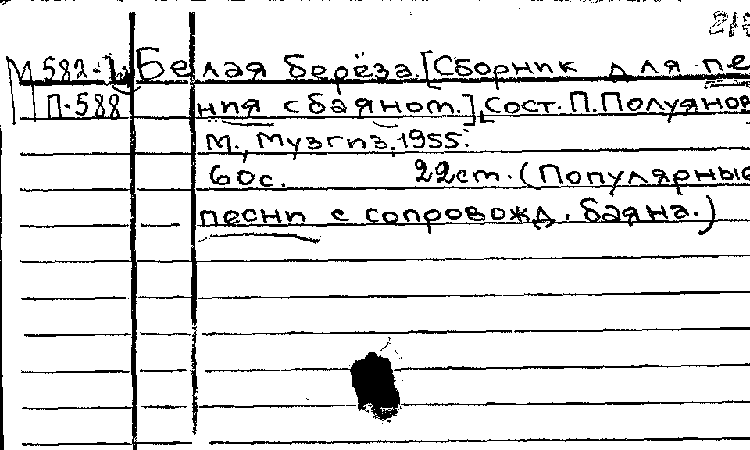 М 582-1 Белая берёза. [Сборник для пе
П-588 ния с баяном.], Сост. П. Полуянов
М., Музгиз, 1955.
60с. 22cm. (Популярные
песни с сопровожд. баяна.)